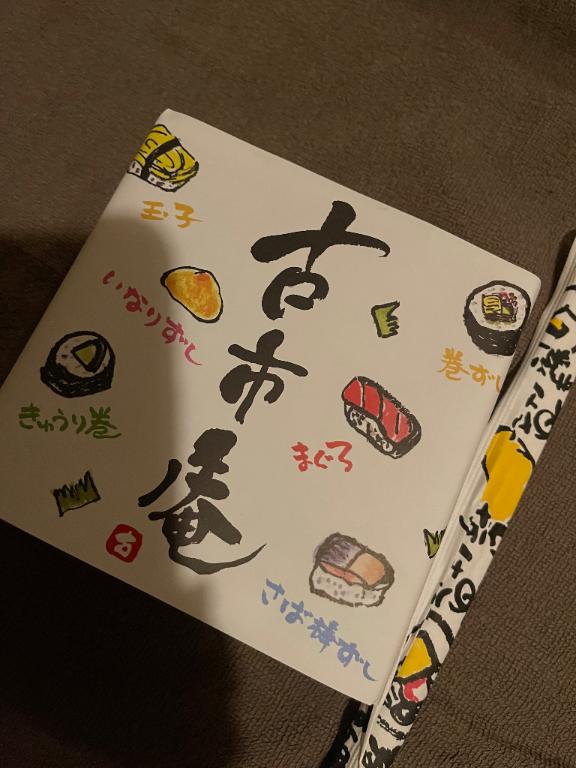 古市庵
玉子
いなりずし
きゅうり巻
巻ずし
まぐろ
さば棒ずし
古